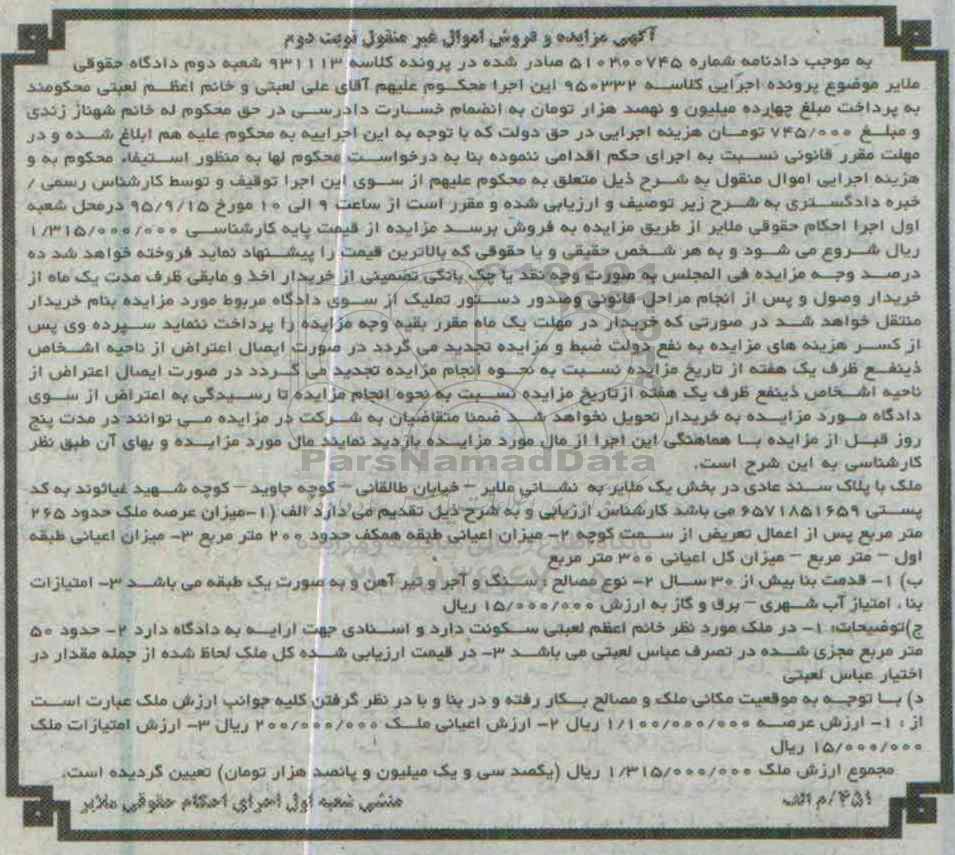 آگهی مزایده و فروش اموال غیر منقول نوبت دوم
به موجب دادنامه شماره ۵۱۰۲۰۰۷۴۵ صادر شده در پرونده کلاسه ۹۳۱۱۱۳ شعبه دوم دادگاه حقوقی
ملایر موضوع پرونده اجرایی کلاسه ۹۵۰۳۳۲ این اجرا محکوم علیهم آقای علی لعبتی و خانم اعظم لعبتی محکومند
به پرداخت مبلغ چهارده میلیون و نهصد هزار تومان به انضمام خسارت دادرسی در حق محکوم له خانم شهناز زندی
و مبلغ ۷۴۵/۰۰۰ تومان هزینه اجرایی در حق دولت که با توجه به این اجراییه به محکوم علیه هم ابلاغ شده و در
مهلت مقرر قانونی نسبت به اجرای حکم اقدامی ننموده بنا به درخواست محکوم لها به منظور استیفاء محکوم به و
هزینه اجرایی اموال منقول به شرح ذیل متعلق به محکوم علیهم از سوی این اجرا توقیف و توسط کارشناس رسمی /
خبره دادگستری به شرح زیر توصیف و ارزیابی شده و مقرر است از ساعت ۹ الی ۱۰ مورخ ۹۵/۹/۱۵ درمحل شعبه
اول اجرا احکام حقوقی ملایر از طریق مزایده به فروش برسد مزایده از قیمت پایه کارشناسی ۱/۳۱۵/۰۰۰/۰۰۰
ریال شروع می شود و به هر شخص حقیقی و یا حقوقی که بالاترین قیمت را پیشنهاد نماید فروخته خواهد شد ده
درصد وجه مزایده فی المجلس به صورت وجه نقد یا چک بانکی تضمینی از خریدار اخذ و مابقی ظرف مدت یک ماه از
خریدار وصول و پس از انجام مراحل قانونی وصدور دستور تملیک از سوی دادگاه مربوط مورد مزایده بنام خریدار
منتقل خواهد شد در صورتی که خریدار در مهلت یک ماه مقرر بقیه وجه مزایده را پرداخت ننماید سپرده وی پس
از کسر هزینه های مزایده به نفع دولت ضبط و مزایده تجدید می گردد در صورت ایصال اعتراض از ناحیه اشخاص
ذینفع ظرف یک هفته از تاریخ مزایده نسبت به نحوه انجام مزایده تجدید می گردد در صورت ایصال اعتراض از
ناحیه اشخاص ذینفع ظرف یک هفته ازتاریخ مزایده نسبت به نحوه انجام مزایده تا رسیدگی به اعتراض از سوی
دادگاه مورد مزایده به خریدار تحویل نخواهد شد ضمنا متقاضیان به شرکت در مزایده می توانند در مدت پنج
روز قبل از مزایده با هماهنگی این اجرا از مال مورد مزایده بازدید نمایند مال مورد مزایده و بهای آن طبق نظر
کارشناسی به این شرح است.
ParsNamadData
ملک با پلاک سند عادی در بخش یک ملایر به نشانی ملایر – خیابان طالقانی – کوچه جاوید – کوچه شهید غیاثوند به کد
پستی ۶۵۷۱۸۵۱۶۵۹ می باشد کارشناس ارزیابی و به شرح ذیل تقدیم می دارد الف (۱-میزان عرصه ملک حدود ۲۶۵
متر مربع پس از اعمال تعریض از سمت کوچه ۲- میزان اعیانی طبقه همکف حدود ۲۰۰ متر مربع ۳- میزان اعیانی طبقه
اول – متر مربع – میزان کل اعیانی ۳۰۰ متر مربع
ب) ۱- قدمت بنا بیش از ۳۰ سال ۲- نوع مصالح : سنگ و آجر و تیر آهن و به صورت یک طبقه می باشد ۳- امتیازات
بنا ، امتیاز آب شهری – برق و گاز به ارزش ۱۵/۰۰۰/۰۰۰ ریال
ج)توضیحات: ۱- در ملک مورد نظر خانم اعظم لعبتی سکونت دارد و اسنادی جهت ارایه به دادگاه دارد ۲- حدود ۵۰
متر مربع مجزی شده در تصرف عباس لعبتی می باشد ۳- در قیمت ارزیابی شده کل ملک لحاظ شده از جمله مقدار در
اختیار عباس لعبتی
د) با توجه به موقعیت مکانی ملک و مصالح بکار رفته و در بنا و با در نظر گرفتن کلیه جوانب ارزش ملک عبارت است
از : ۱- ارزش عرصه ۱/۱۰۰/۰۰۰/۰۰۰ ریال ۲- ارزش اعیانی ملک ۲۰۰/۰۰۰/۰۰۰ ریال ۳- ارزش امتیازات ملک
۱۵/۰۰۰/۰۰۰ ریال
مجموع ارزش ملک ۱/۳۱۵/۰۰۰/۰۰۰ ریال (یکصد سی و یک میلیون و پانصد هزار تومان) تعیین گردیده است.
۴۵۱/م الف
منشی شعبه اول اجرای احکام حقوقی ملایر